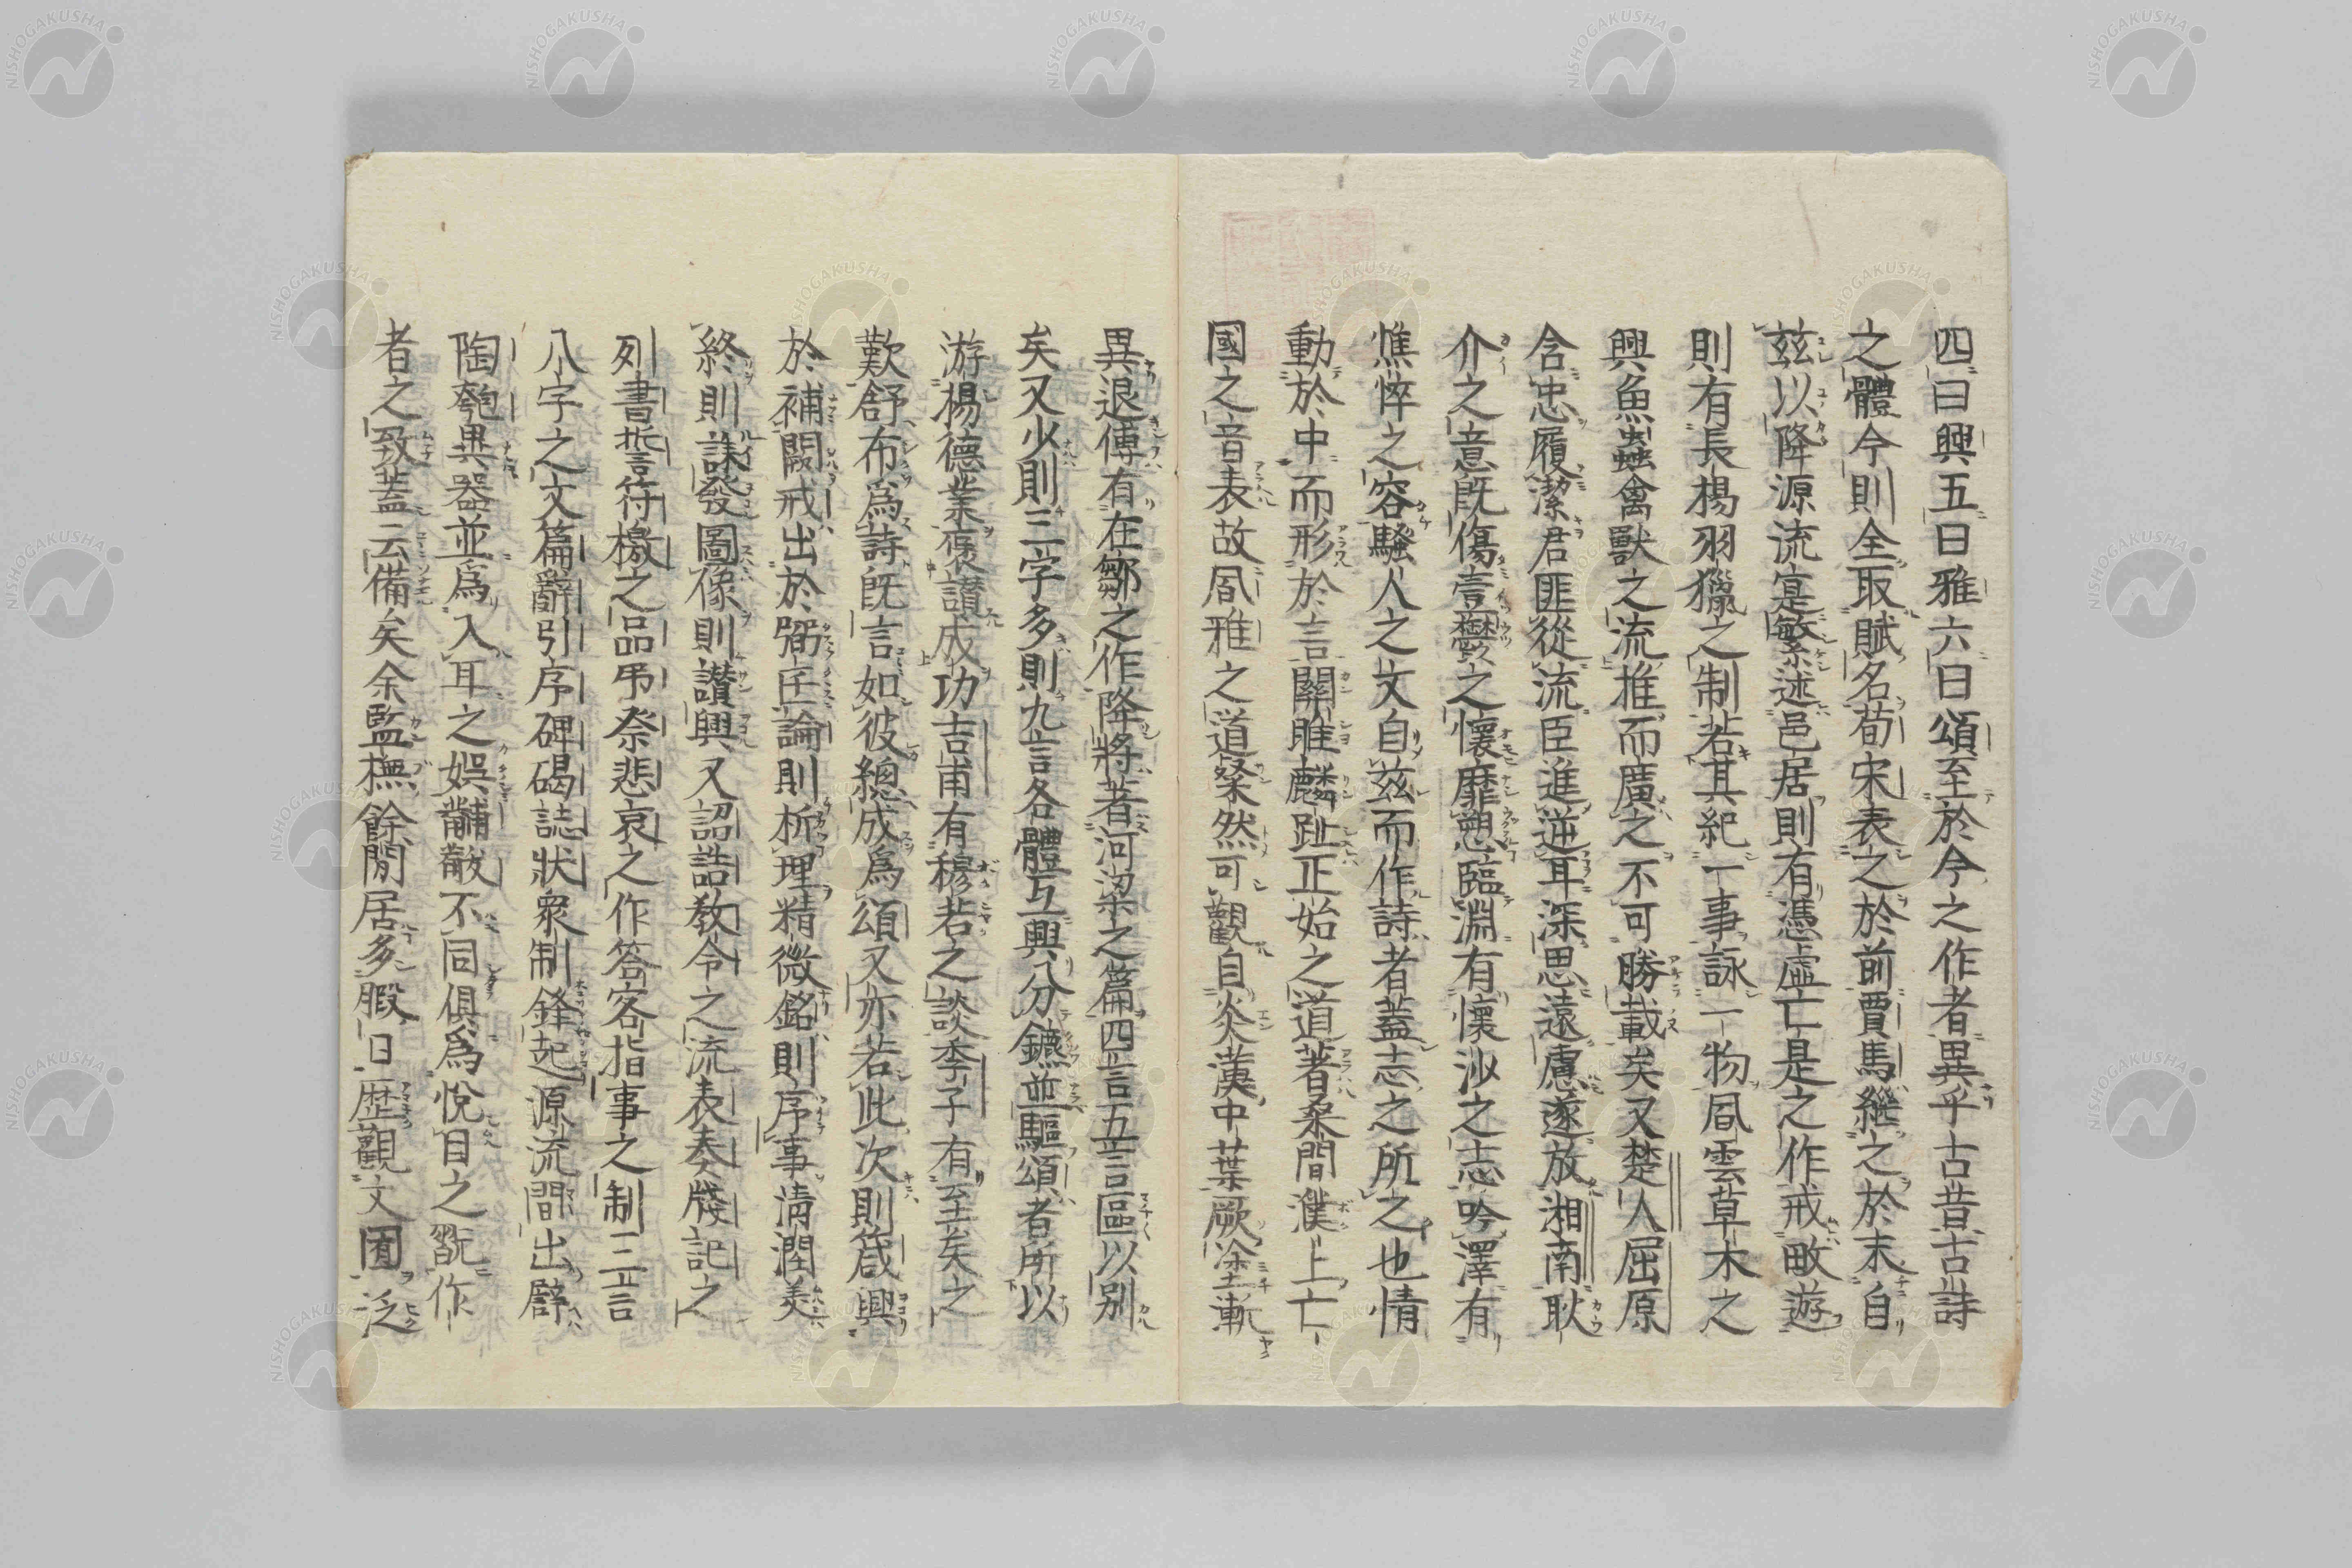 四曰興五曰雅六曰頌至於今之作者異乎古昔古詩
之體今則全取賦名荀宋表之於前賈馬繼之於末自
茲以降源流寔繁述邑居則有憑虛亡是之作戒畋遊
則有長楊羽獵之制若其紀一事詠一物風雲草木之
興魚蟲禽獸之流推而廣之不可勝載矣又楚人屈原
含忠履潔君匪從流臣進逆耳深思遠慮遂放湘南耿
介之意既傷壹鬱之懷靡愬臨淵有懷沙之志吟澤有
憔悴之容騷人之文自茲而作詩者蓋志之所之也情
動於中而形於言關雎麟趾正始之道著桑間濮上亡
國之音表故風雅之道粲然可觀自炎漢中葉厥塗漸
異退傅有在鄒之作降將著河梁之篇四言五言區以別
矣又少則三字多則九言各體互興分鑣並驅頌者所以
游楊德業褒讃成功吉甫有穆若之談季子有至矣之
歎舒布為詩既言如彼總成為頌又亦若此次則箴興
於補闕戒出於弼匡論則析理精微銘則序事清潤美
終則誄發圖像則讃興又詔誥教令之流表奏牋記之
列書誓符檄之品弔祭悲哀之作答客指事之制三言
八字之文篇辭引序碑碣誌狀衆制鋒起源流間出譬
陶匏異器並為入耳之娯黼黻不同俱為悅目之翫作
者之致蓋云備矣余監撫餘閒居多暇日歷觀文囿泛
NISHOGAKUSHA